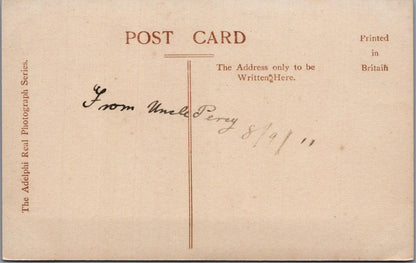 POST CARD
The Address only to be
Written Here.
Printed
in
Britain
The Adelphi Real Photograph Series.
From Uncle Percy
8/9/11